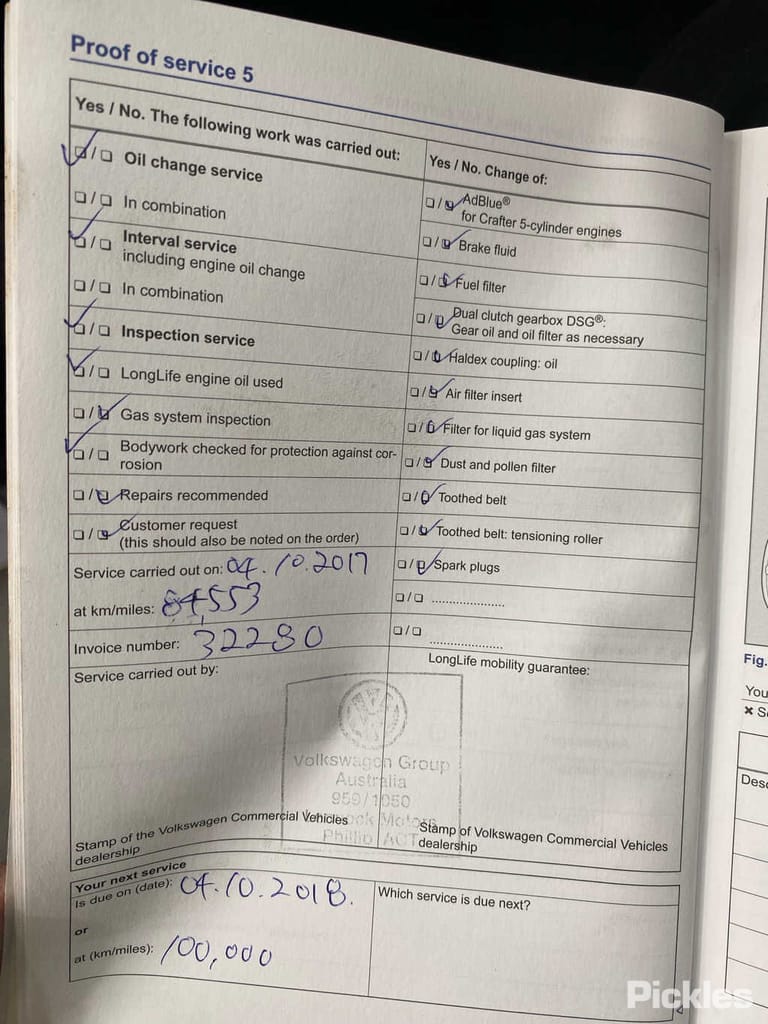 Proof of service 5
Yes / No. The following work was carried out:
☑/☐ Oil change service
☐/☐ In combination
☑/☐ Interval service
including engine oil change
☐/☐ In combination
☑/☐ Inspection service
☑/☐ LongLife engine oil used
☐/☑ Gas system inspection
☑/☐ Bodywork checked for protection against cor-
rosion
☐/☑ Repairs recommended
☐/☑ Customer request
(this should also be noted on the order)
Service carried out on: 04.10.2017
at km/miles: 84,553
Invoice number: 32280
Service carried out by:
Yes / No. Change of:
☐/☑ AdBlue®
for Crafter 5-cylinder engines
☐/☑ Brake fluid
☐/☑ Fuel filter
☐/☑ Dual clutch gearbox DSG®:
Gear oil and oil filter as necessary
☐/☑ Haldex coupling: oil
☐/☑ Air filter insert
☐/☑ Filter for liquid gas system
☐/☑ Dust and pollen filter
☐/☑ Toothed belt
☐/☑ Toothed belt: tensioning roller
☐/☑ Spark plugs
☐/☐ .....................
☐/☐ .....................
LongLife mobility guarantee:
Volkswagen Group
Australia
959/1050
Motors
Phillip ACT
Stamp of the Volkswagen Commercial Vehicles
dealership
Stamp of Volkswagen Commercial Vehicles
dealership
Your next service
Is due on (date): 04.10.2018.
or
at (km/miles): 100,000
Which service is due next?
Fig.
You
Pickles